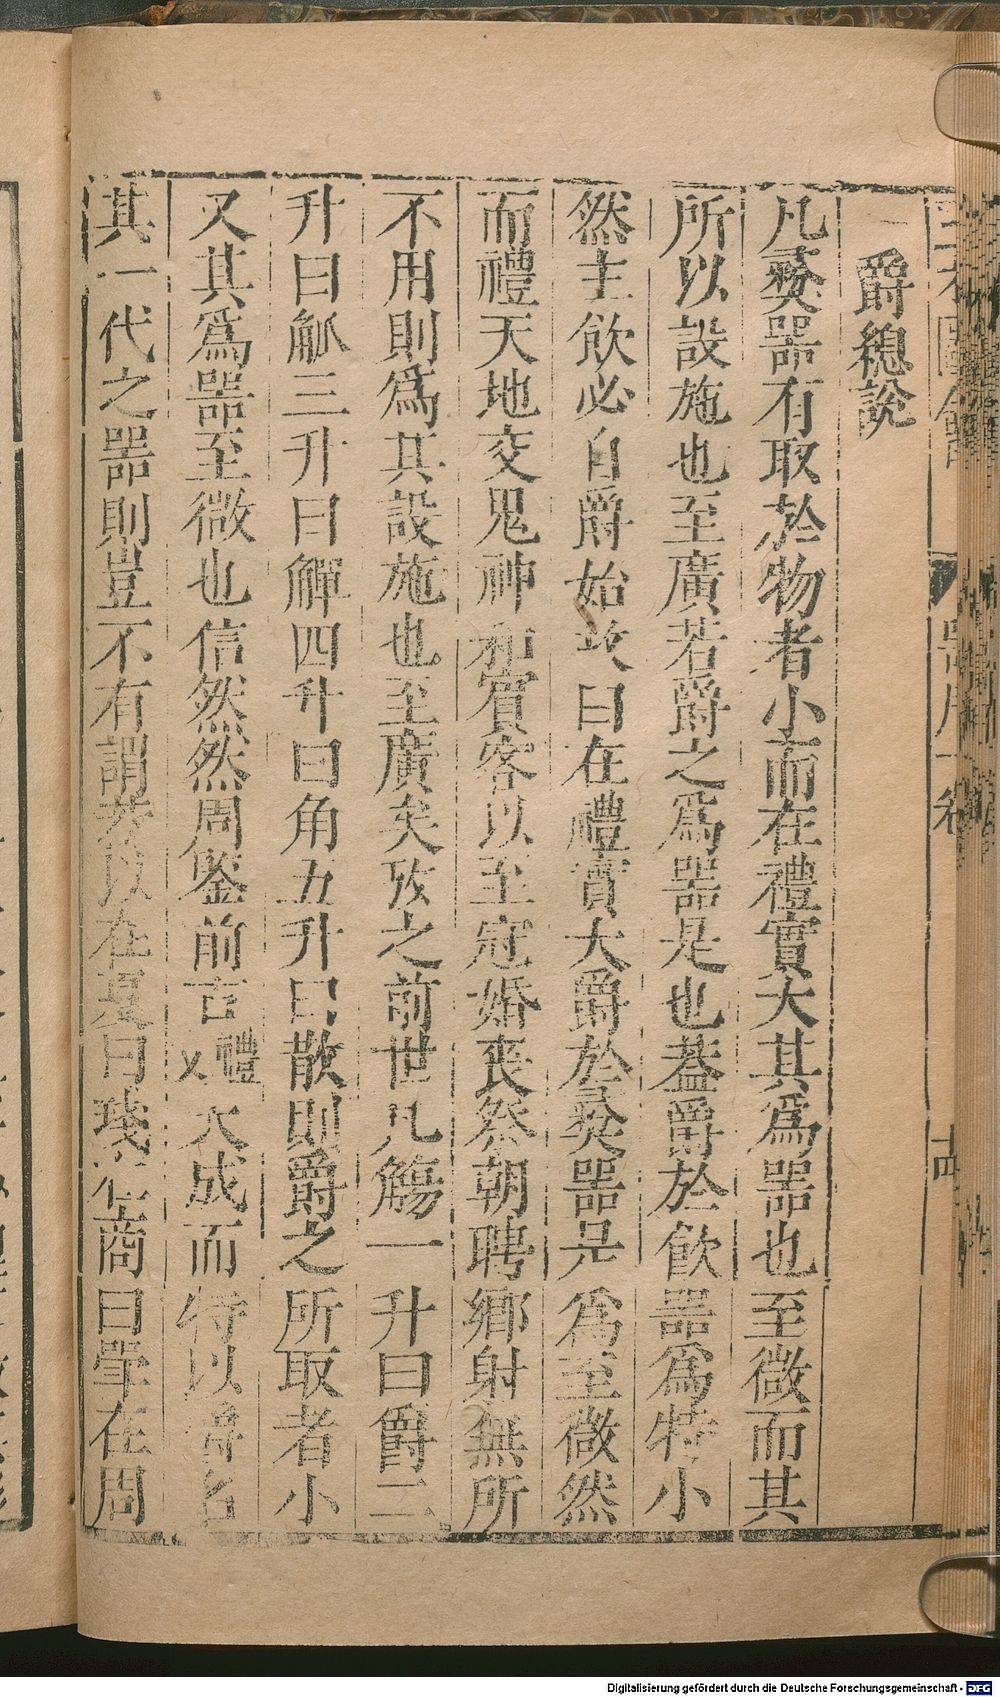 爵總說
凡彝器有取於物者小而在禮實大其爲器也至微而其
所以設施也至廣若爵之爲器是也葢爵於飲器爲特小
然主飲必自爵始故曰在禮實大爵於彝器是爲至微然
而禮天地交鬼神和賓客以至冠婚喪祭朝聘鄉射無所
不用則爲其設施也至廣矣攷之前世凡觴一升曰爵二
升曰觚三升曰觶四升曰角五升曰散則爵之所取者小
又其爲器至微也信然然周鍳前古禮文大成而特以爵名
其一代之器則豈不有謂若以在夏曰琖在商曰斝在周
Digitalisierung gefördert durch die Deutsche Forschungsgemeinschaft - DFG